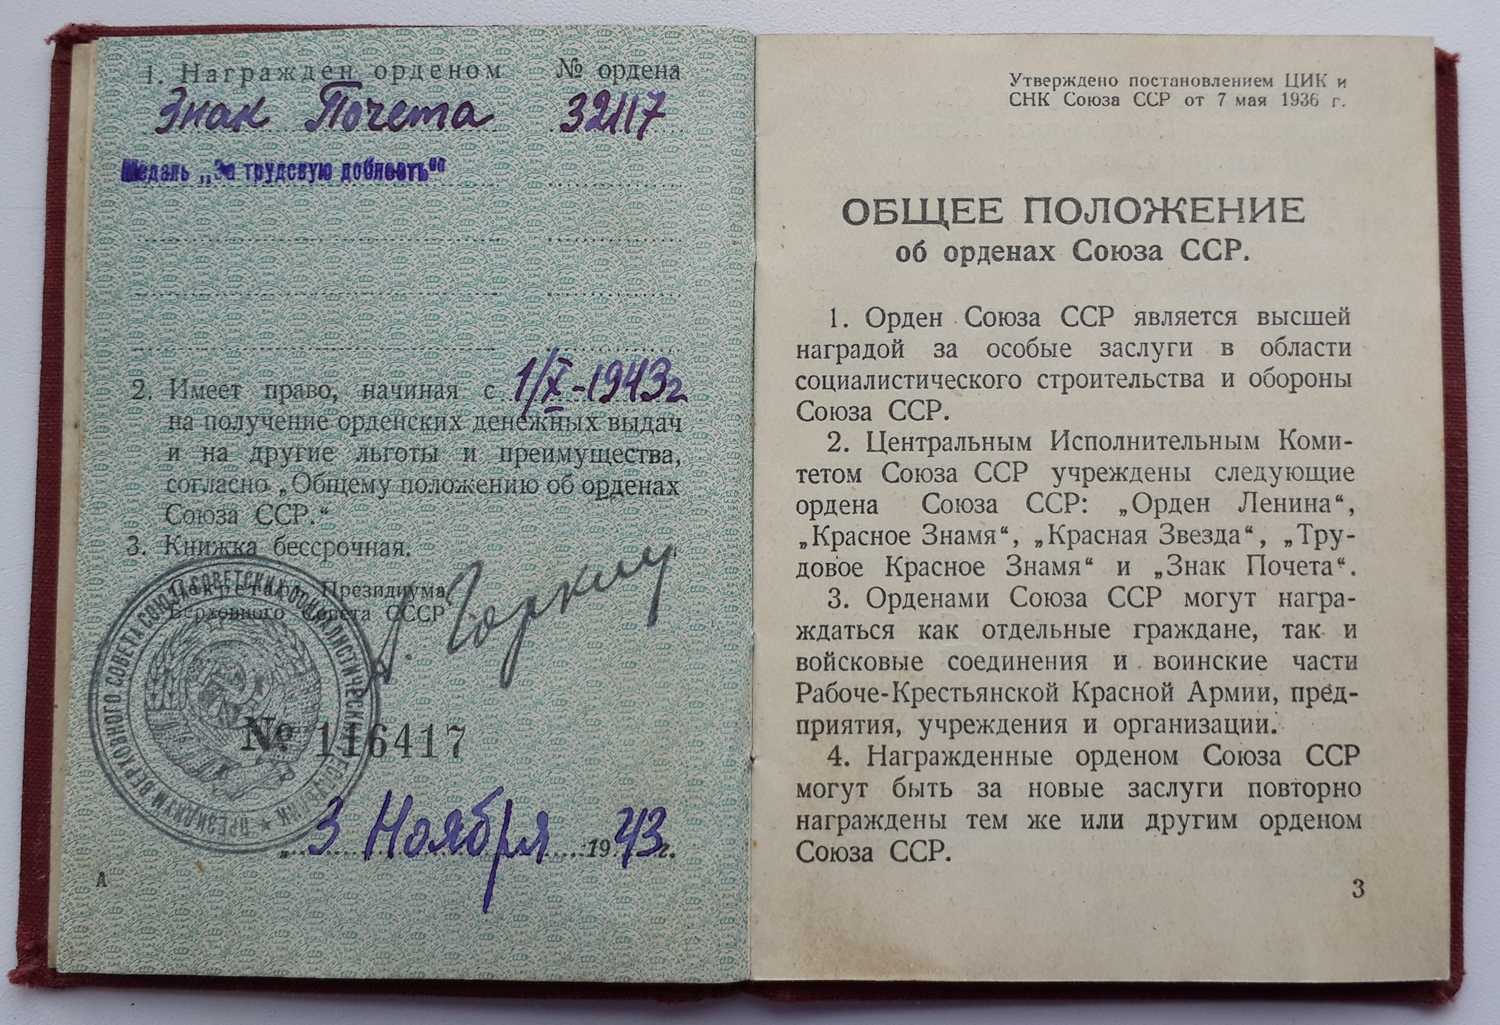 1. Награжден орденом № ордена
Знак Почета 32117
Медаль „За трудовую доблесть“
2. Имеет право, начиная с 1/X-1943г
на получение орденских денежных выдач
и на другие льготы и преимущества,
согласно „Общему положению об орденах
Союза ССР.“
3. Книжка бессрочная.
Секретарь Президиума
Верховного Совета СССР
А. Горкин
ПРЕЗИДИУМ ВЕРХОВНОГО СОВЕТА СОЮЗА СОВЕТСКИХ СОЦИАЛИСТИЧЕСКИХ РЕСПУБЛИК ★
№ 116417
„ 3 Ноября 1943 г.
А
Утверждено постановлением ЦИК и
СНК Союза ССР от 7 мая 1936 г.
ОБЩЕЕ ПОЛОЖЕНИЕ
об орденах Союза ССР.
1. Орден Союза ССР является высшей
наградой за особые заслуги в области
социалистического строительства и обороны
Союза ССР.
2. Центральным Исполнительным Коми-
тетом Союза ССР учреждены следующие
ордена Союза ССР: „Орден Ленина“,
„Красное Знамя“, „Красная Звезда“, „Тру-
довое Красное Знамя“ и „Знак Почета“.
3. Орденами Союза ССР могут награ-
ждаться как отдельные граждане, так и
войсковые соединения и воинские части
Рабоче-Крестьянской Красной Армии, пред-
приятия, учреждения и организации.
4. Награжденные орденом Союза ССР
могут быть за новые заслуги повторно
награждены тем же или другим орденом
Союза ССР.
3